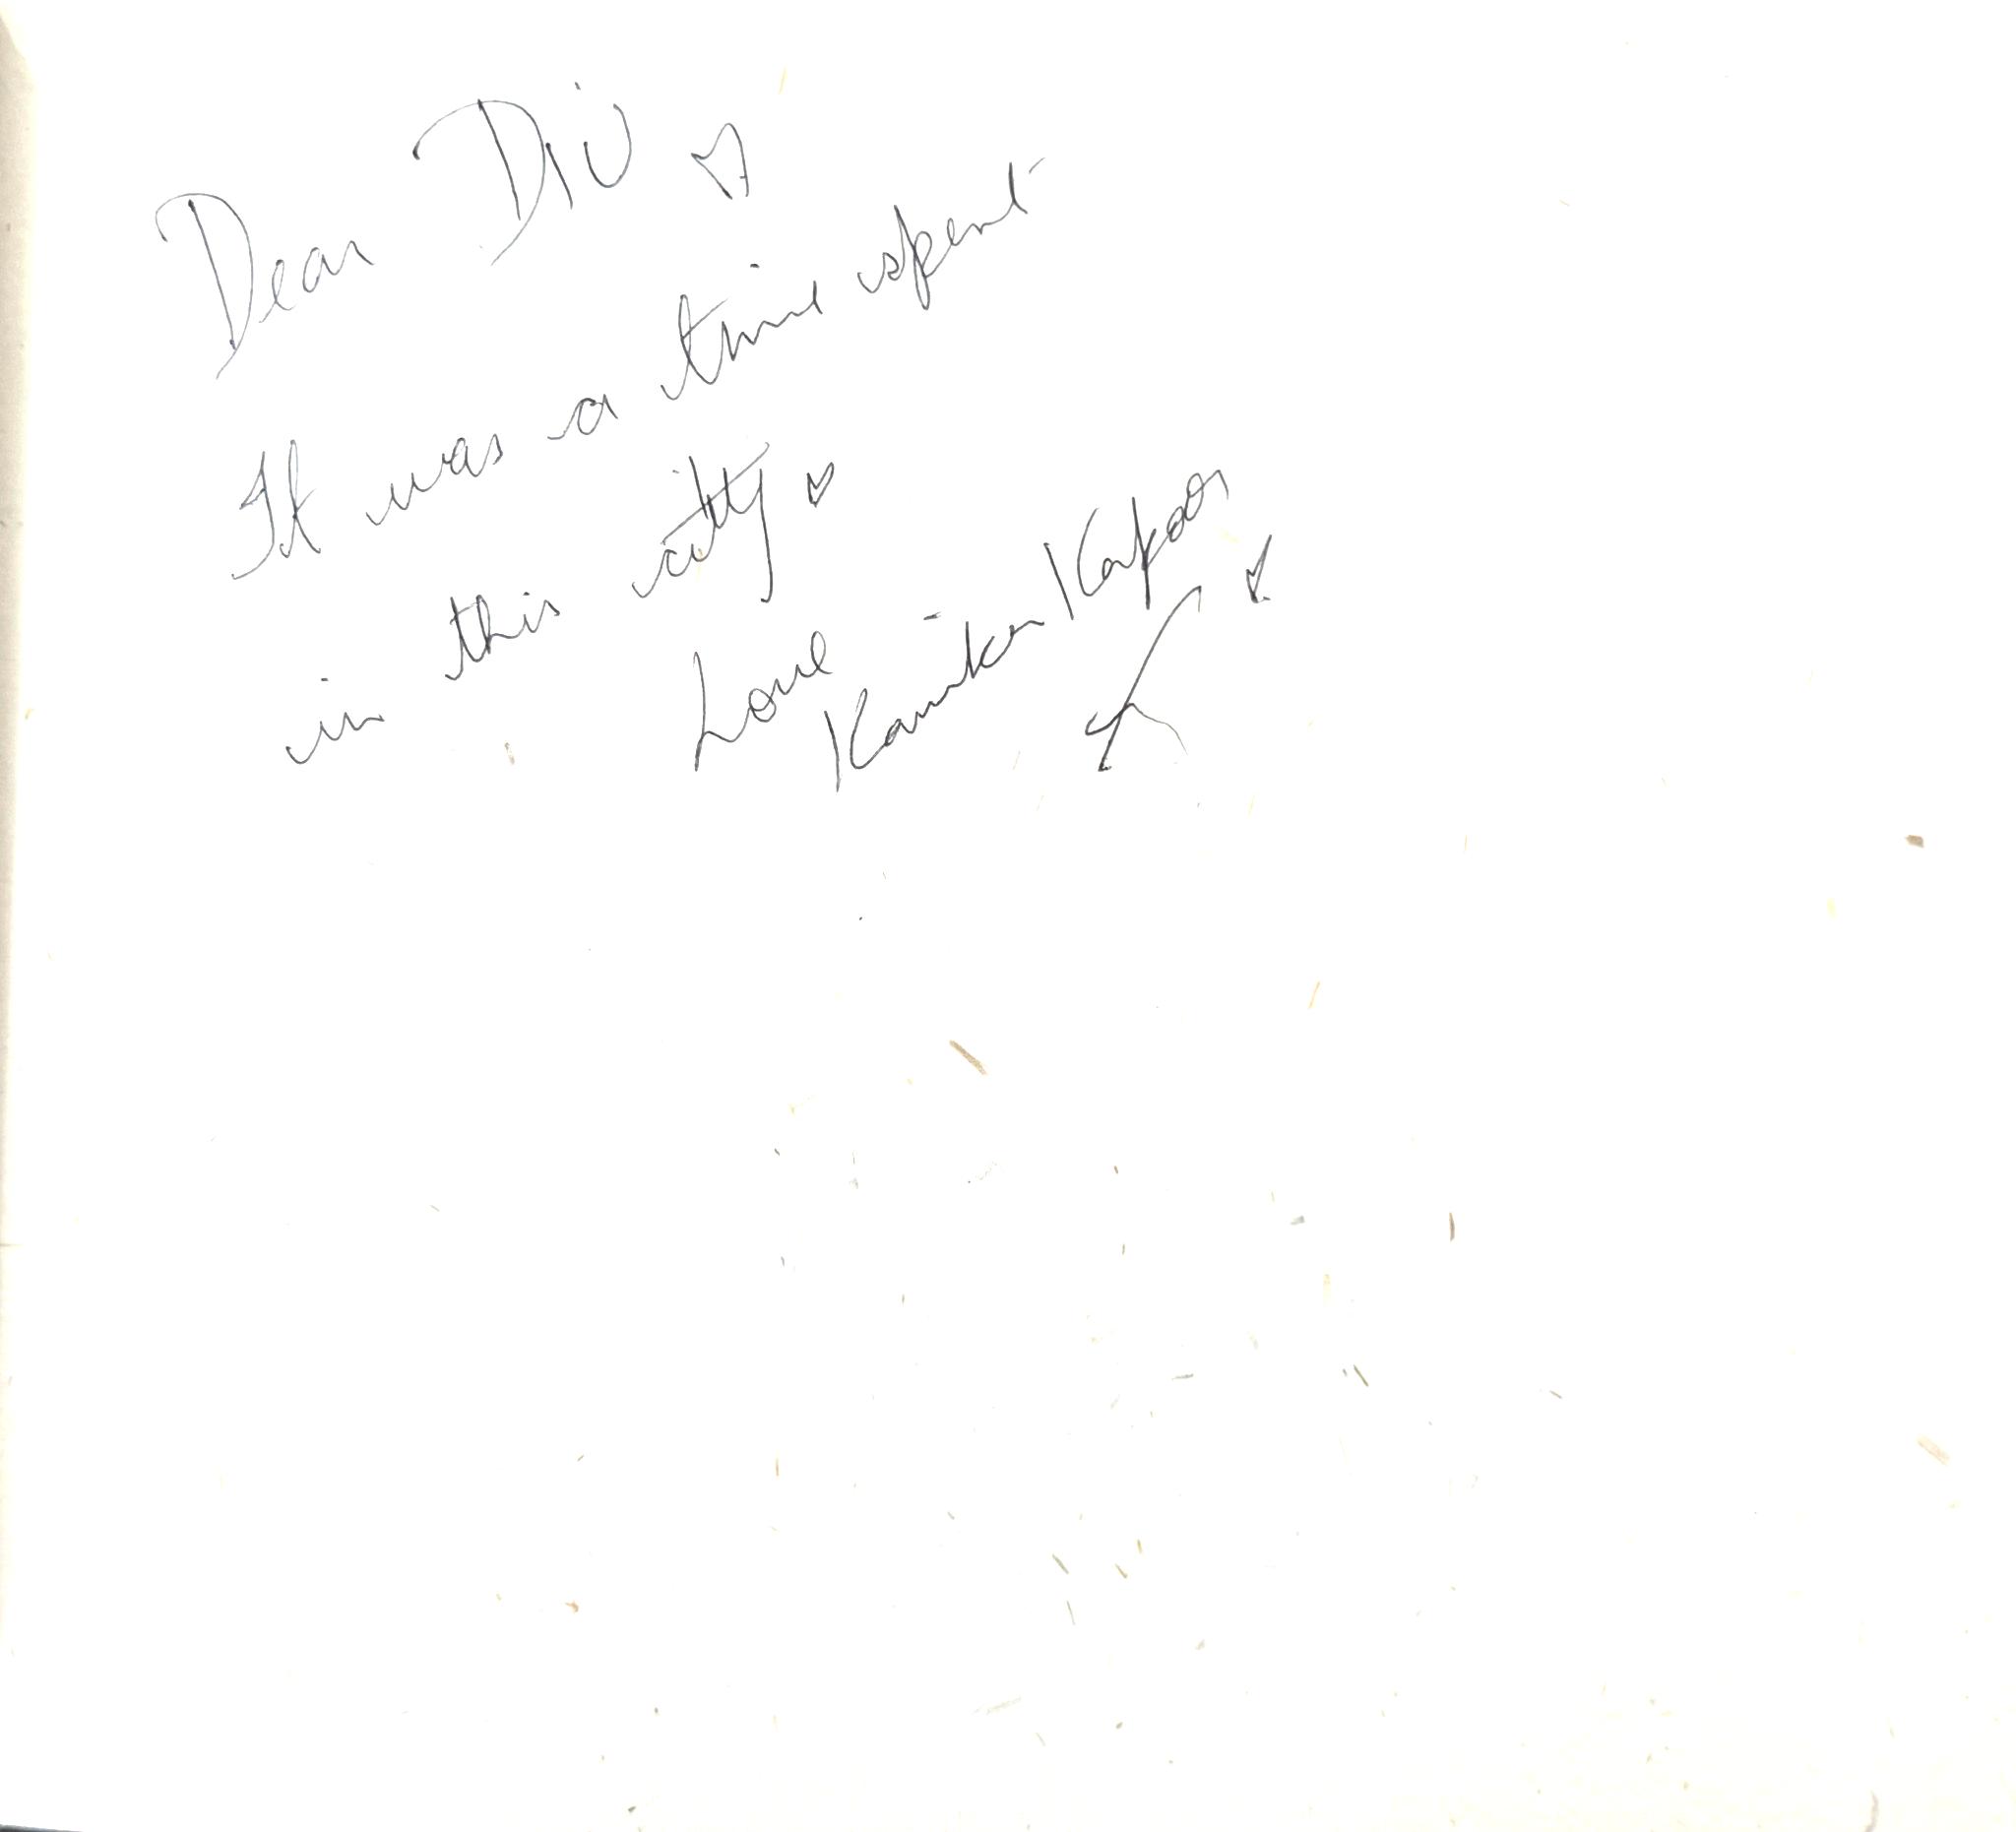 Dear Div ♡
It was a time spent
in this city ♡
Love
Kanika Kapoor ♡